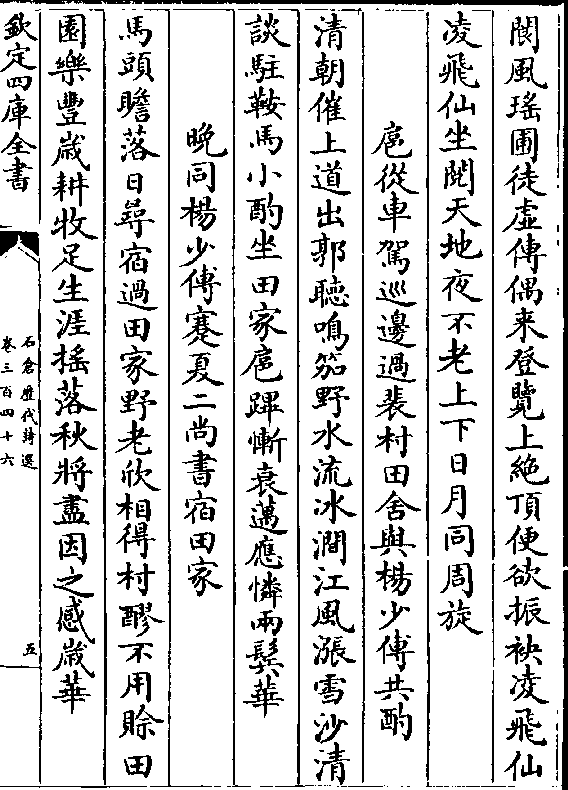 閬風瑤圃徒虛傳偶来登覽上絶頂便欲振袂凌飛仙
凌飛仙坐閲天地夜不老上下日月同周旋
扈從車駕巡邊過裴村田舍與楊少傅共酌
清朝催上道出郭聽鳴笳野水流冰澗江風漲雪沙清
談駐鞍馬小酌坐田家扈蹕慚衰邁應憐兩鬓華
晚同楊少傅蹇夏二尚書宿田家
馬頭瞻落日尋宿過田家野老欣相得村醪不用賒田
園樂豐歳耕牧足生涯揺落秋將盡因之感歳華
欽定四庫全書
石倉歷代詩選
卷三百四十六
五